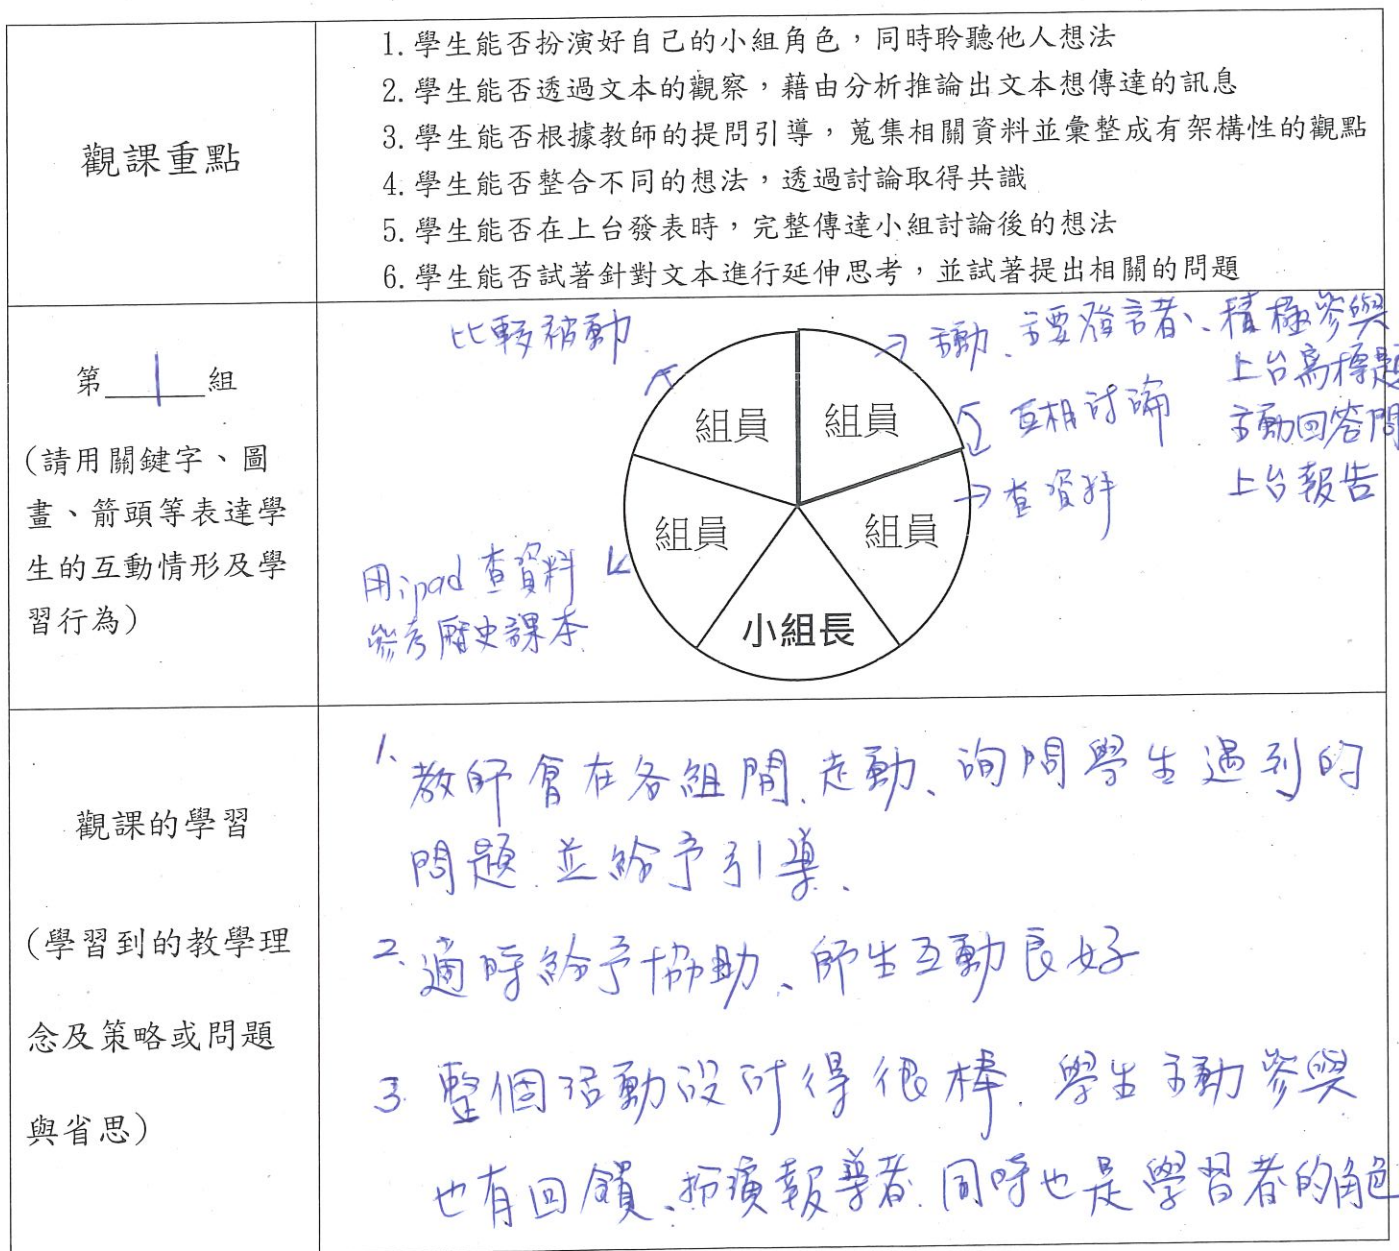 觀課重點
1.學生能否扮演好自己的小組角色，同時聆聽他人想法
2.學生能否透過文本的觀察，藉由分析推論出文本想傳達的訊息
3.學生能否根據教師的提問引導，蒐集相關資料並彙整成有架構性的觀點
4.學生能否整合不同的想法，透過討論取得共識
5.學生能否在上台發表時，完整傳達小組討論後的想法
6.學生能否試著針對文本進行延伸思考，並試著提出相關的問題
第 1 組
(請用關鍵字、圖
畫、箭頭等表達學
生的互動情形及學
習行為)
比較被動
→ 主動、主要發言者、積極參與
上台寫標題
互相討論
主動回答問
→ 查資料
上台報告
組員
組員
組員
組員
小組長
用ipad 查資料
參考歷史課本
觀課的學習
(學習到的教學理
念及策略或問題
與省思)
1、教師會在各組間、走動、詢問學生遇到的
問題、並給予引導、
2、適時給予協助、師生互動良好
3. 整個活動設計得很棒、學生主動參與
也有回饋、扮演報導者、同時也是學習者的角色